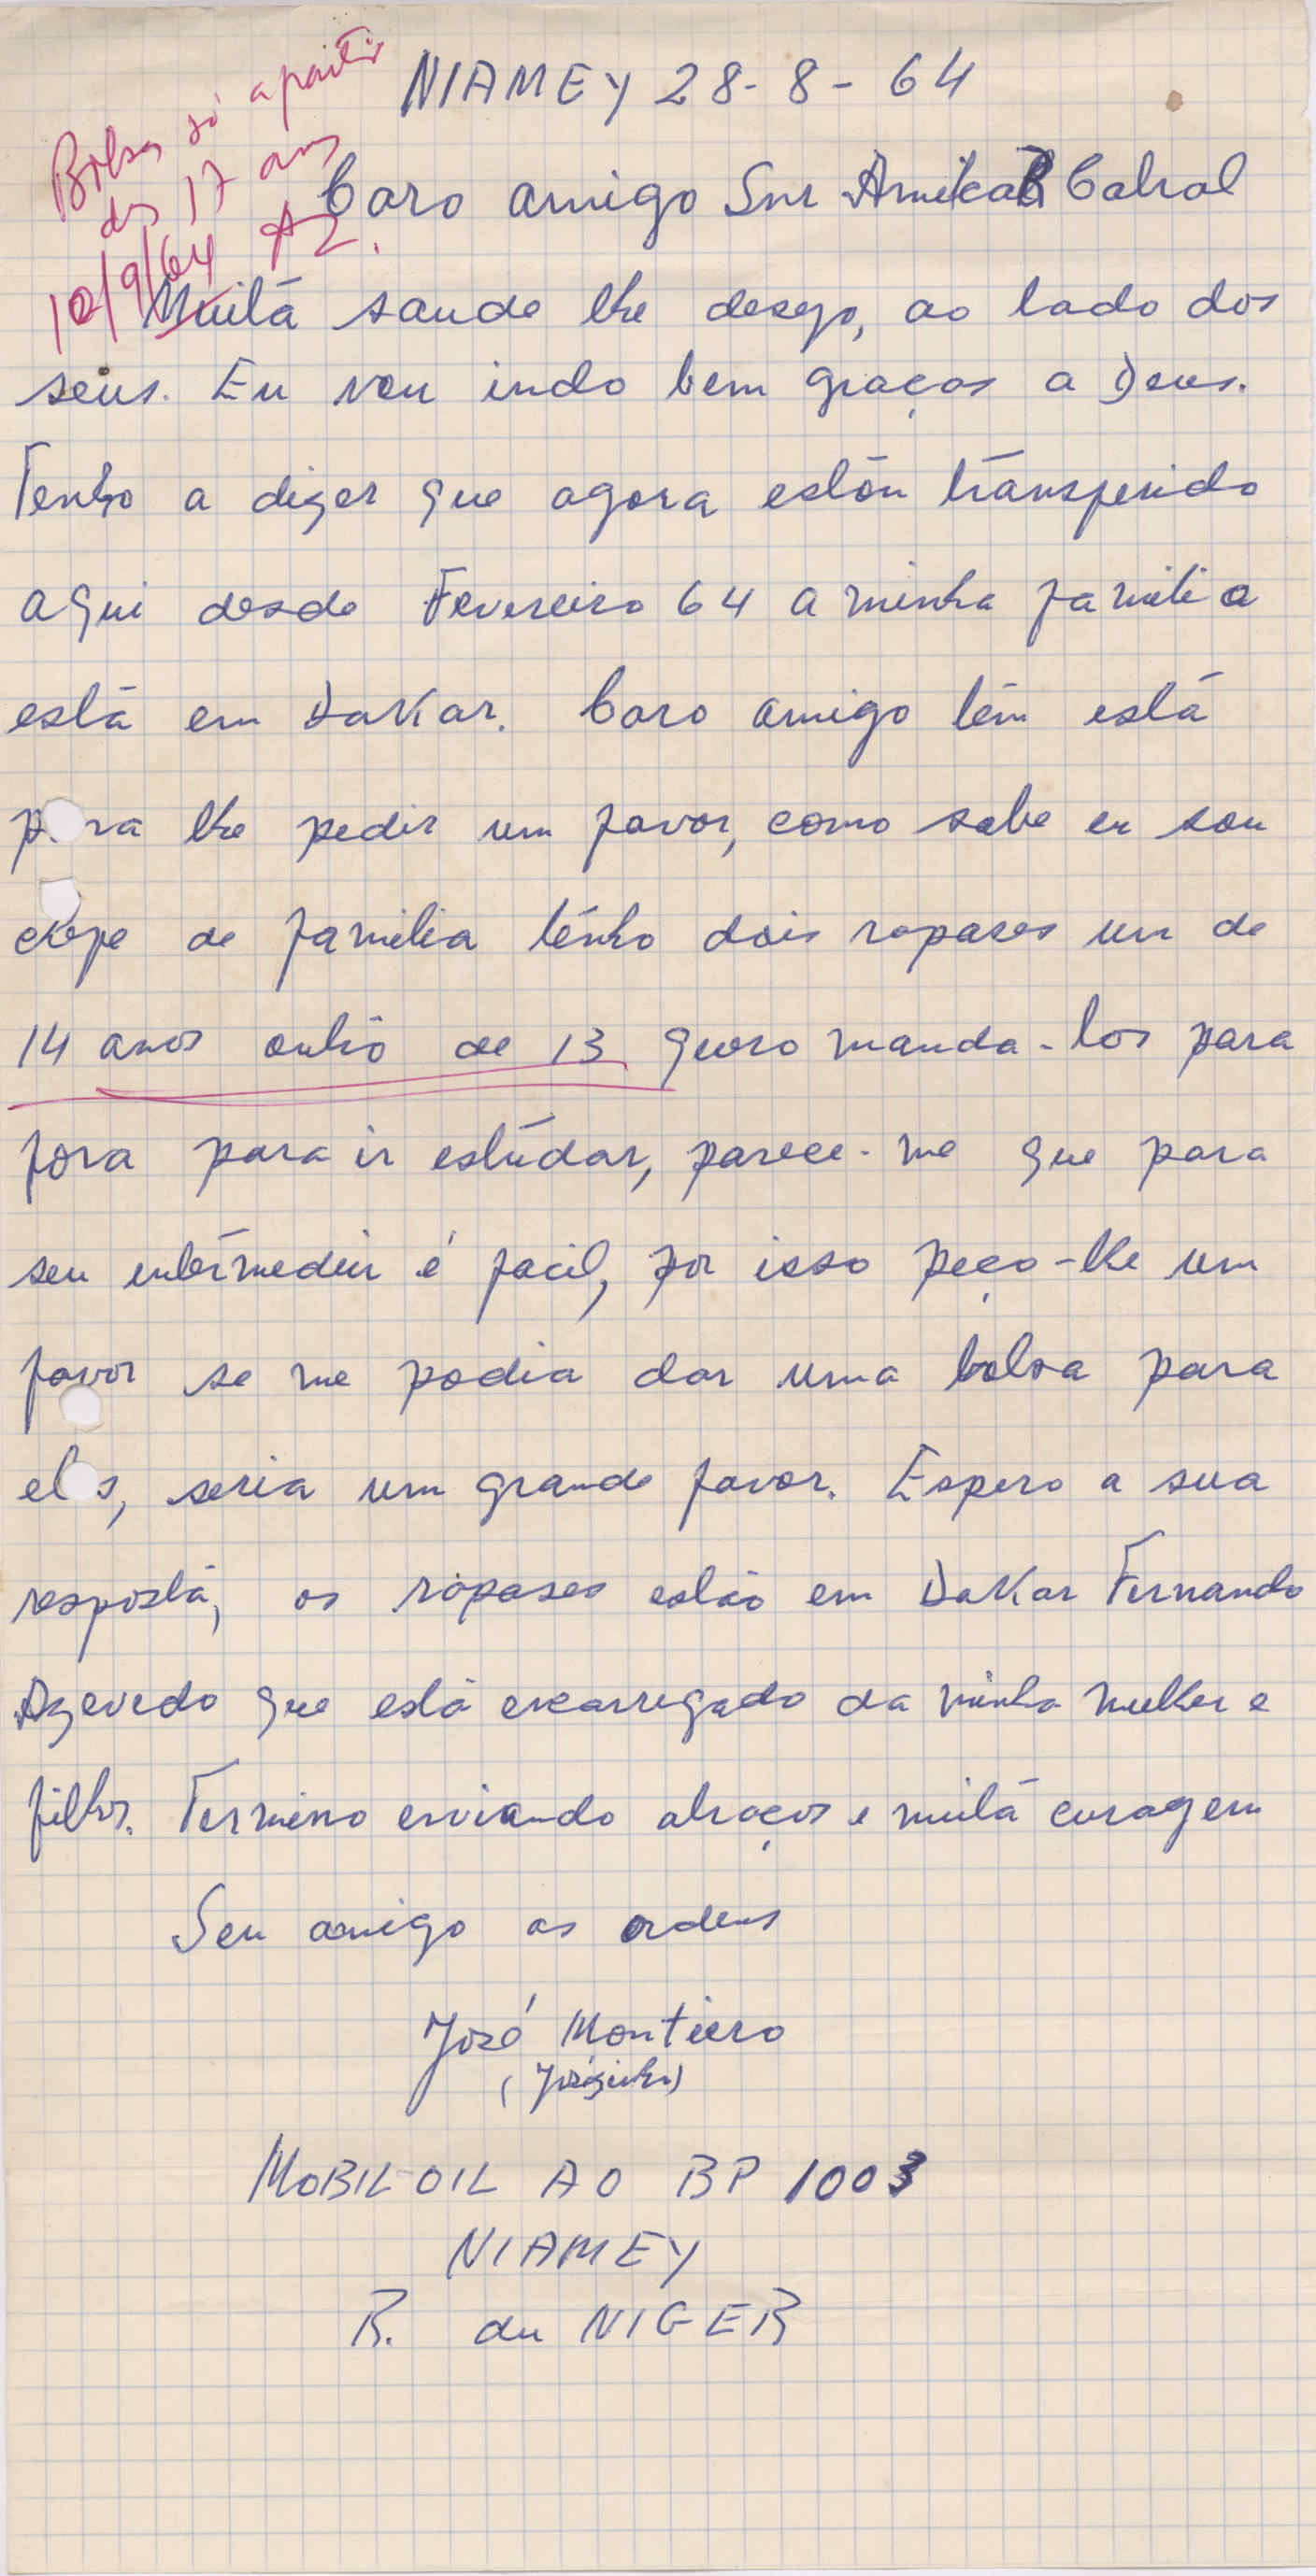 Bolsas só a partir
dos 17 anos
10/9/64
NIAMEY 28-8-64
Caro amigo Snr Amilcar Cabral
Muitá saude lhe desejo, ao lado dos
seus. Eu vou indo bem graças a Deus.
Tenho a dizer que agora estóu tránsferido
aqui desde Fevereiro 64 a minha familia
está em Dakar. Caro amigo tém está
para lhe pedir um favor, como sabe eu sou
chefe de familia ténho dois rapases um de
14 anos outro de 13 quero manda-los para
fora para ir estúdar, parece-me que para
seu intérmedeir é facil, por isso peço-lhe um
favor se me podia dar uma bolsa para
eles, seria um grande favor. Espero a sua
respostá, os rapases estão em Dakar Fernando
Azevedo que está encarregado da minha mulher e
filhos. Termino enviando abraços e muitá coragem
Seu amigo as ordens
José Montiero
(Jósézinho)
MOBIL OIL AO BP 1003
NIAMEY
R. du NIGER